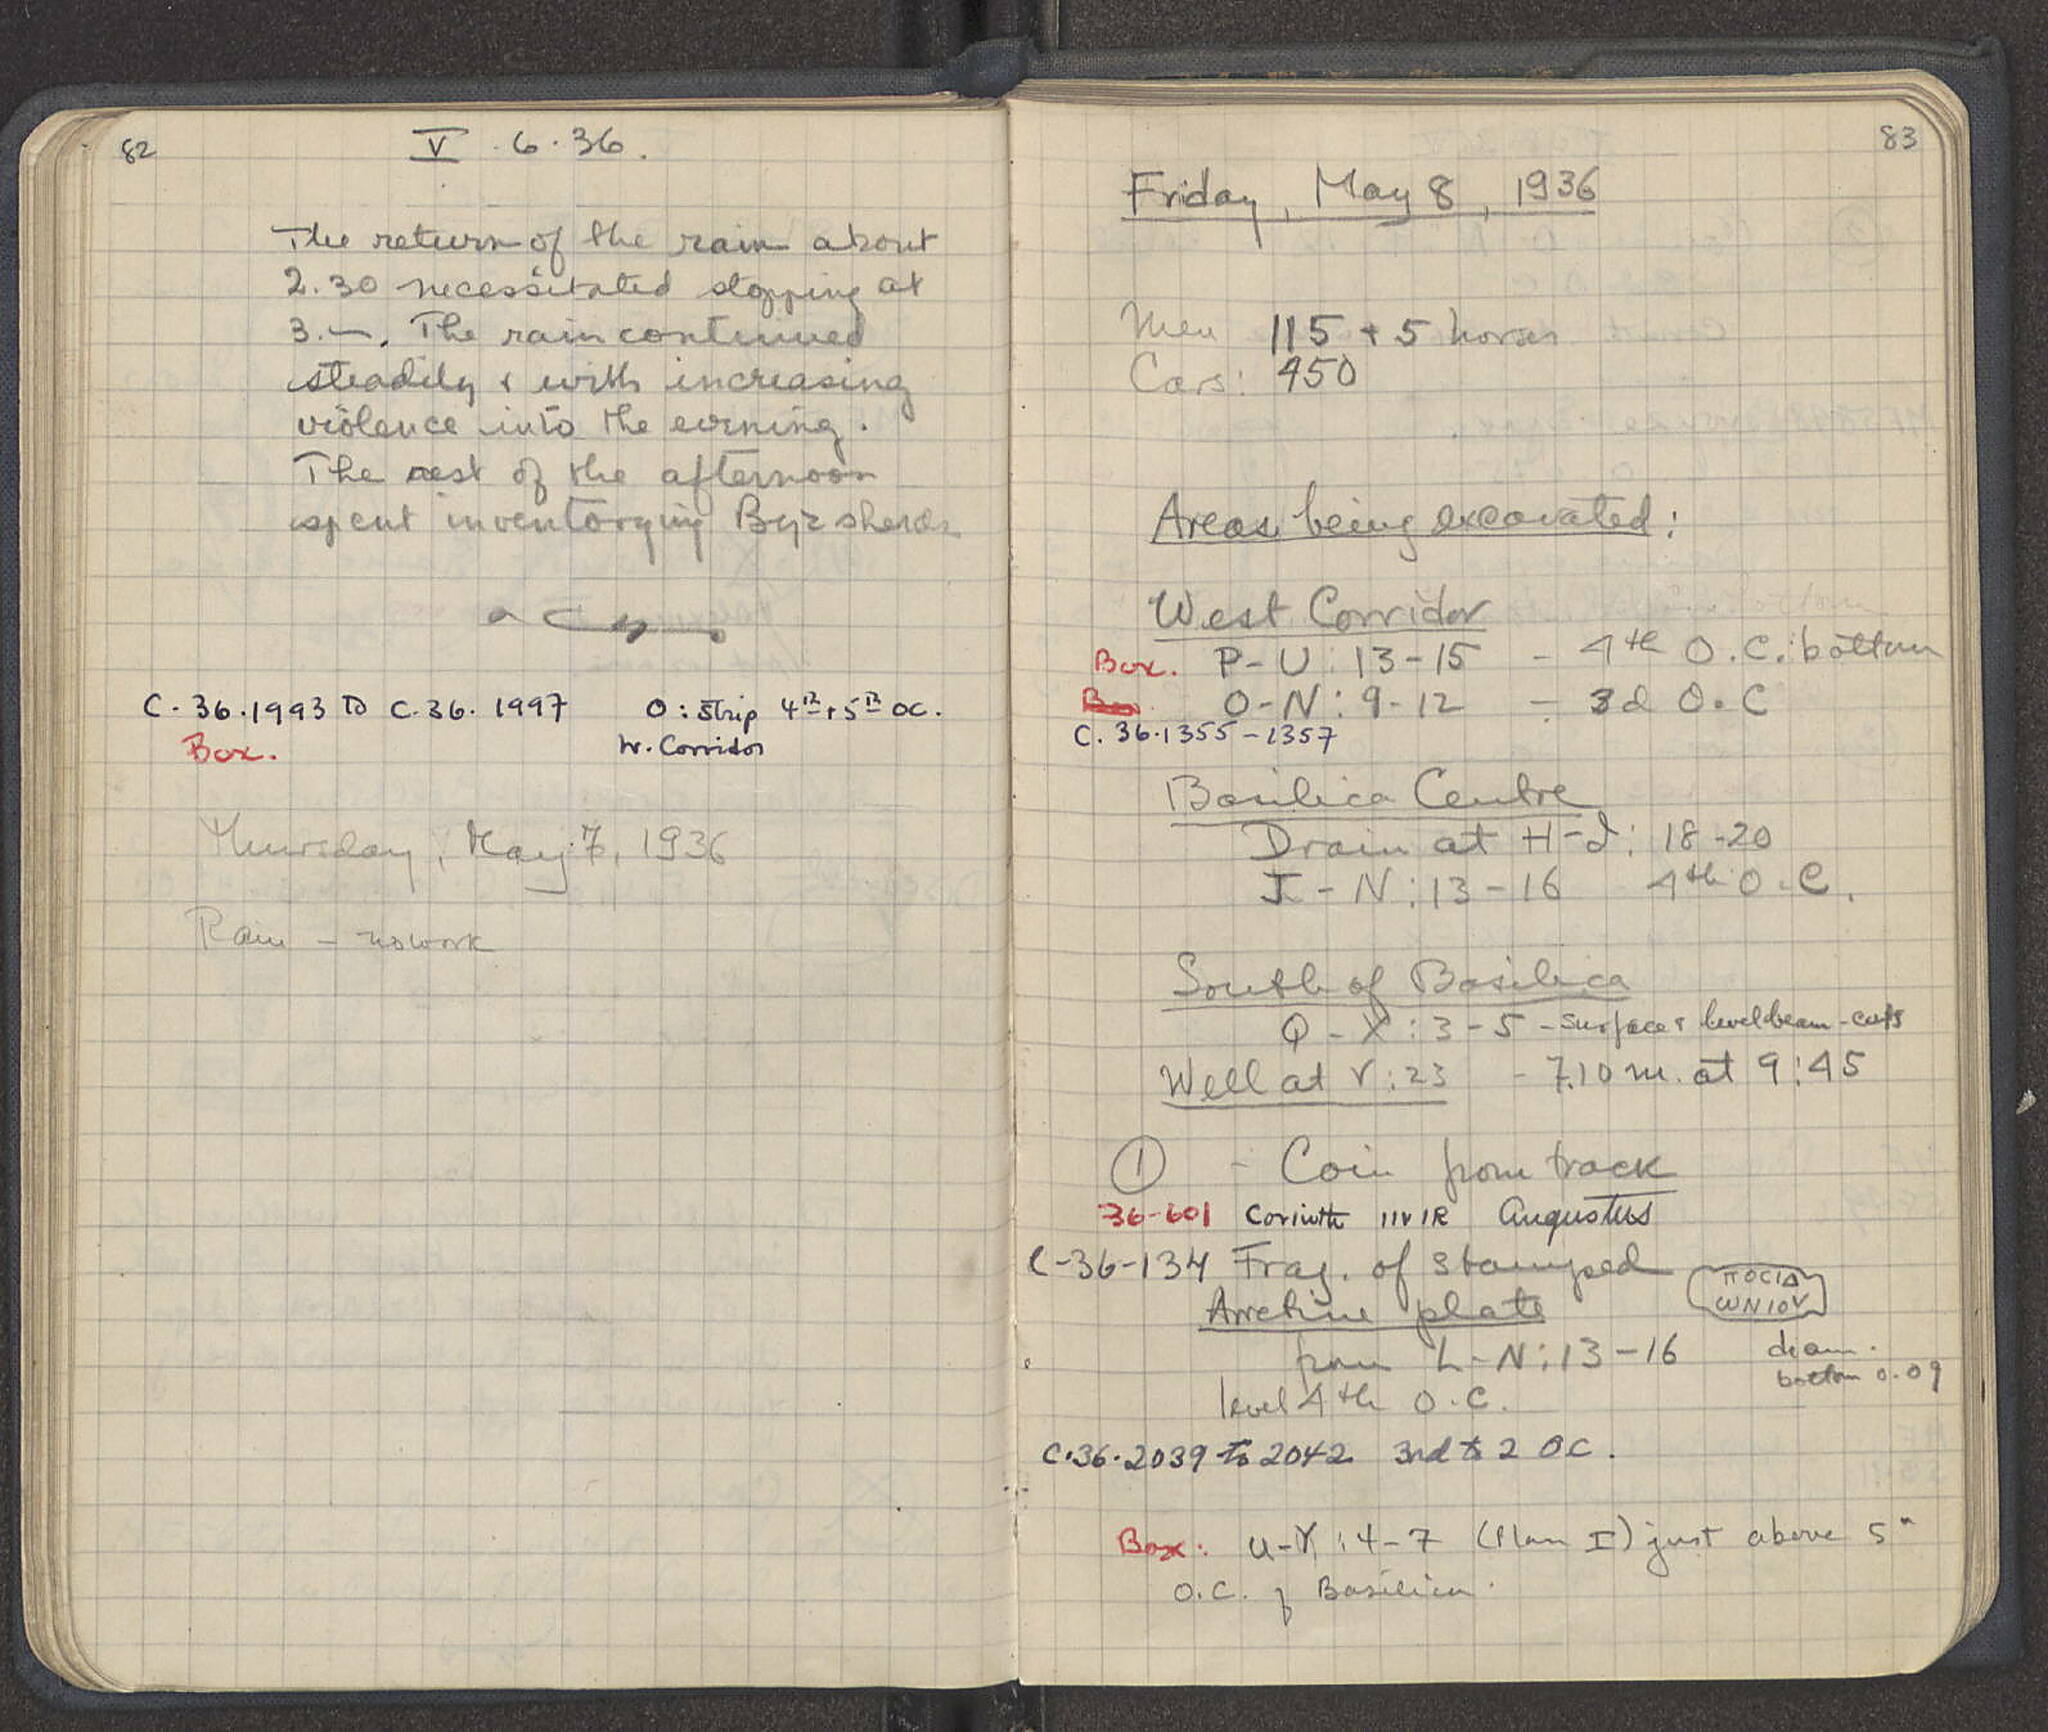 82
V . 6 . 36.
The return of the rain about
2.30 necessitated stopping at
3.–. The rain continued
steadily & with increasing
violence into the evening.
The rest of the afternoon
spent inventorying Byz sherds
C. 36.1993 to C.36. 1997 O: Strip 4th + 5th OC.
Box. W. Corridor
Thursday, May 7, 1936
Rain – no work
83
Friday, May 8, 1936
Men 115 + 5 horses
Cars: 450
Areas being excavated:
West Corridor
Box. P-U: 13-15 – 4th O.C. bottom
O-N: 9-12 – 3d O.C
C. 36.1355-1357
Basilica Centre
Drain at H-I: 18-20
I-N: 13-16 4th O.C.
South of Basilica
Q-X: 3-5 – surface & level beam-cuts
Well at V:23 – 7.10 m. at 9:45
① – Coin from track
36-601 Corinth IIVIR Augustus
C-36-134 Frag. of stamped
Arretine plate
ΠΟCΙΔ
ωΝΙΟΥ
from L-N: 13-16
level 4th O.C.
diam.
bottom 0.09
C.36.2039 to 2042 3rd to 2 OC.
Box: U-Y: 4-7 (Plan I) just above 5"
O.C. of Basilica.